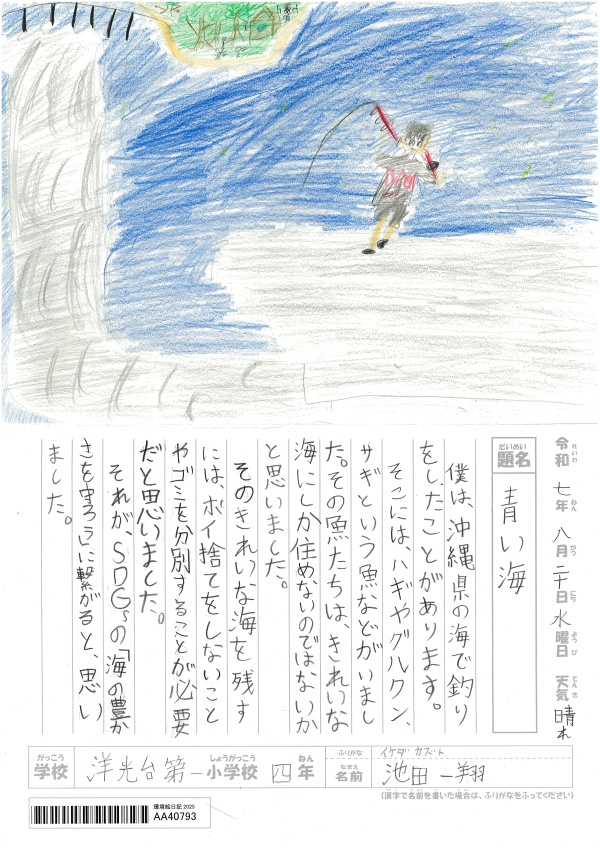 令和 七年 八月 二十日 水曜日 天気 晴れ
題名 青い海
僕は、沖縄県の海で釣り
をしたことがあります。
そこには、ハギやグルクン、
サギという魚などがいまし
た。その魚たちは、きれいな
海にしか住めないのではないか
と思いました。
そのきれいな海を残す
には、ポイ捨てをしないこと
やゴミを分別することが必要
だと思いました。
それが、SDGsの「海の豊か
さを守ろう」に繋がると、思い
ました。
がっこう 学校 洋光台第一 しょうがっこう 小学校 四 ねん 年
ふりがな イケダ カズト
なまえ 名前 池田 一翔
(漢字で名前を書いた場合は、ふりがなをふってください)
環境絵日記 2025
AA40793